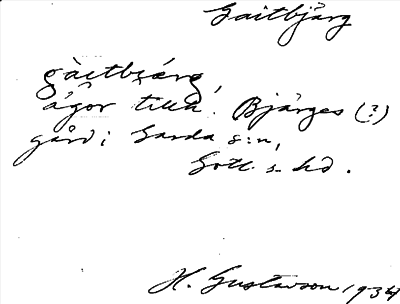 Gaitbjärg
gàitbjærg,
ågor till Bjärges (?)
gård i Garda s:n,
Gotl. s. hd.
H. Gustavson 1934